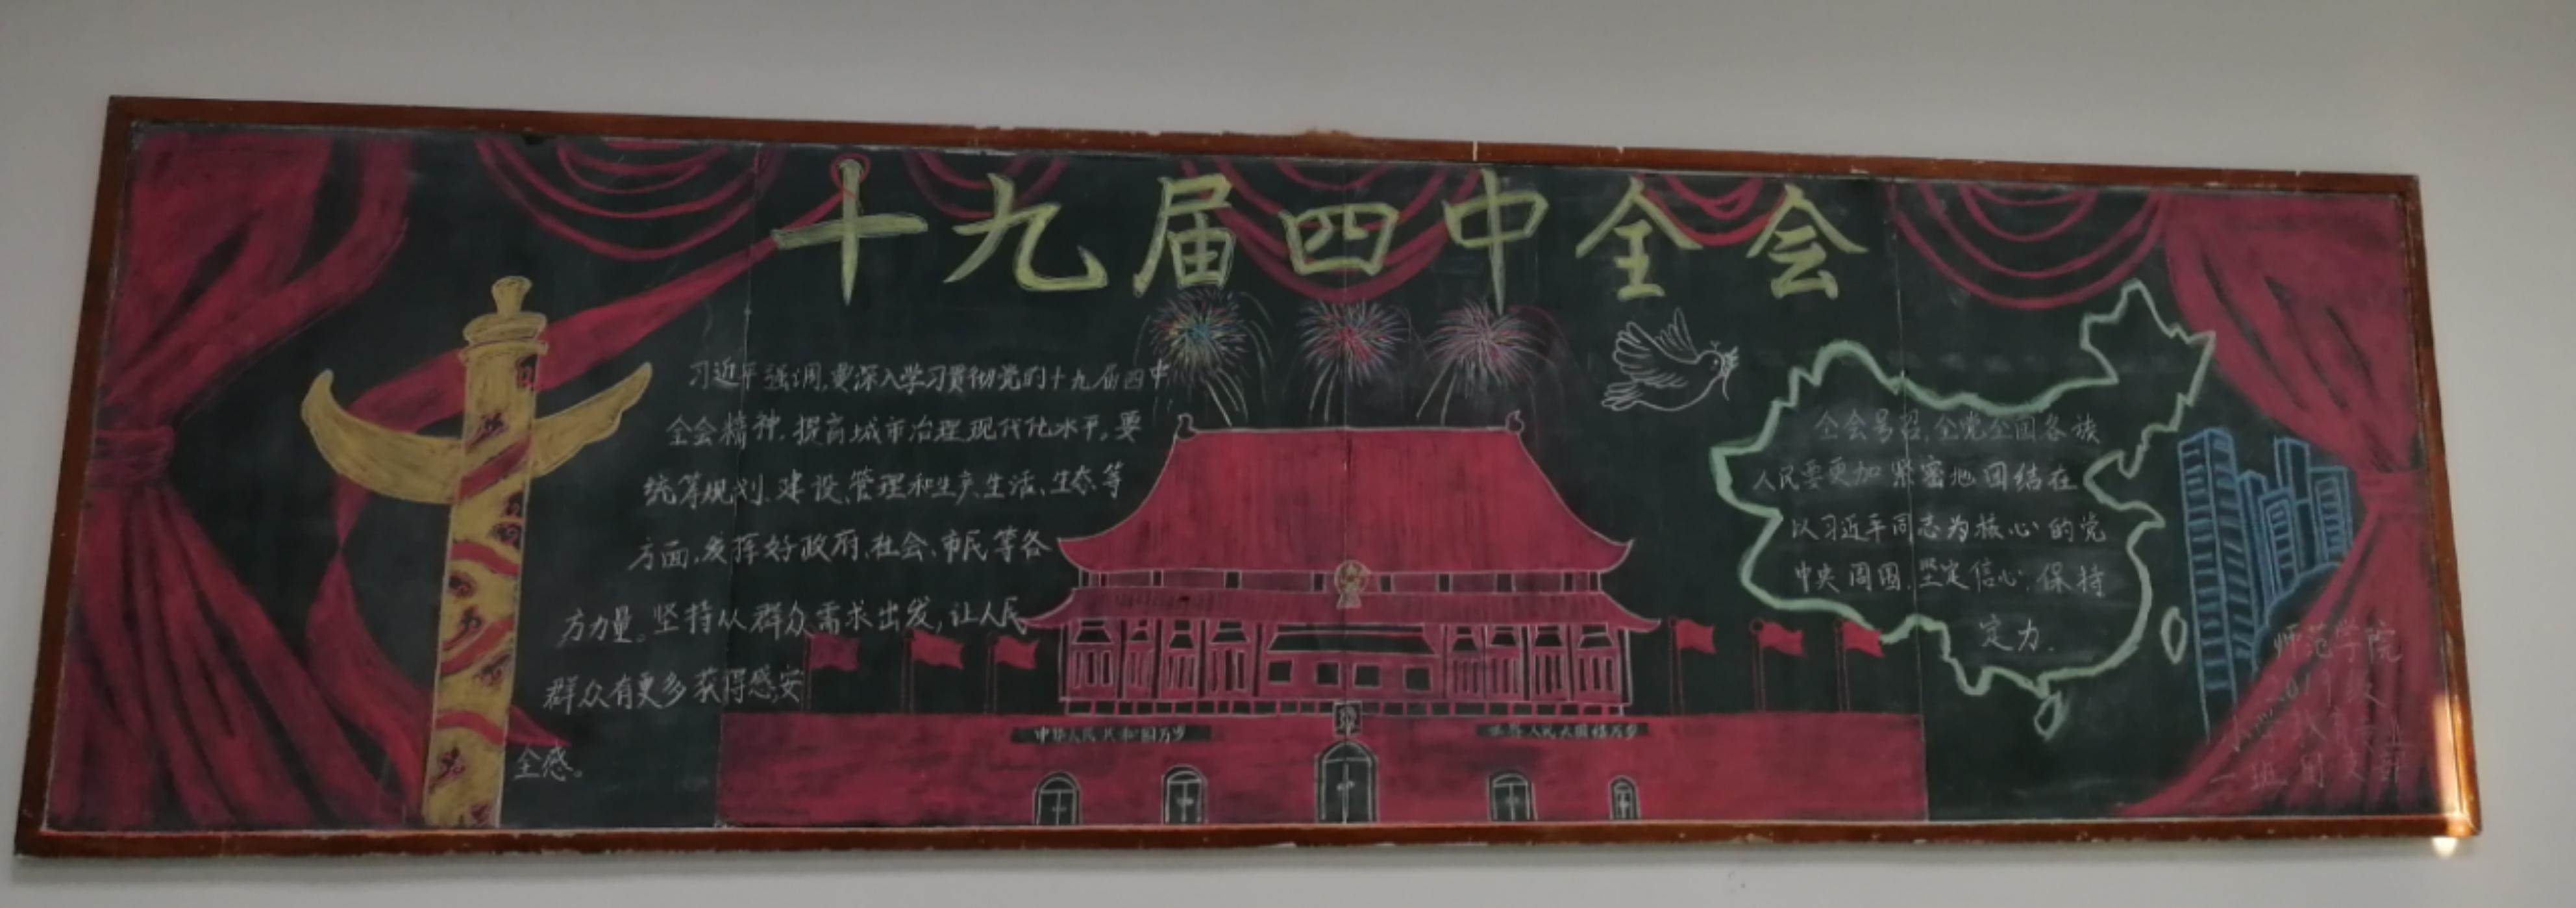 十九届四中全会
习近平强调,要深入学习贯彻党的十九届四中
全会精神,提高城市治理现代化水平。要
统筹规划、建设、管理和生产、生活、生态等
方面,发挥好政府、社会、市民等各
方力量。坚持从群众需求出发,让人民
群众有更多获得感、安
全感。
全会号召,全党全国各族
人民要更加紧密地团结在
以习近平同志为核心的党
中央周围,坚定信心,保持
定力.
中华人民共和国万岁
世界人民大团结万岁
师范学院
2019级
小学教育专业
一班